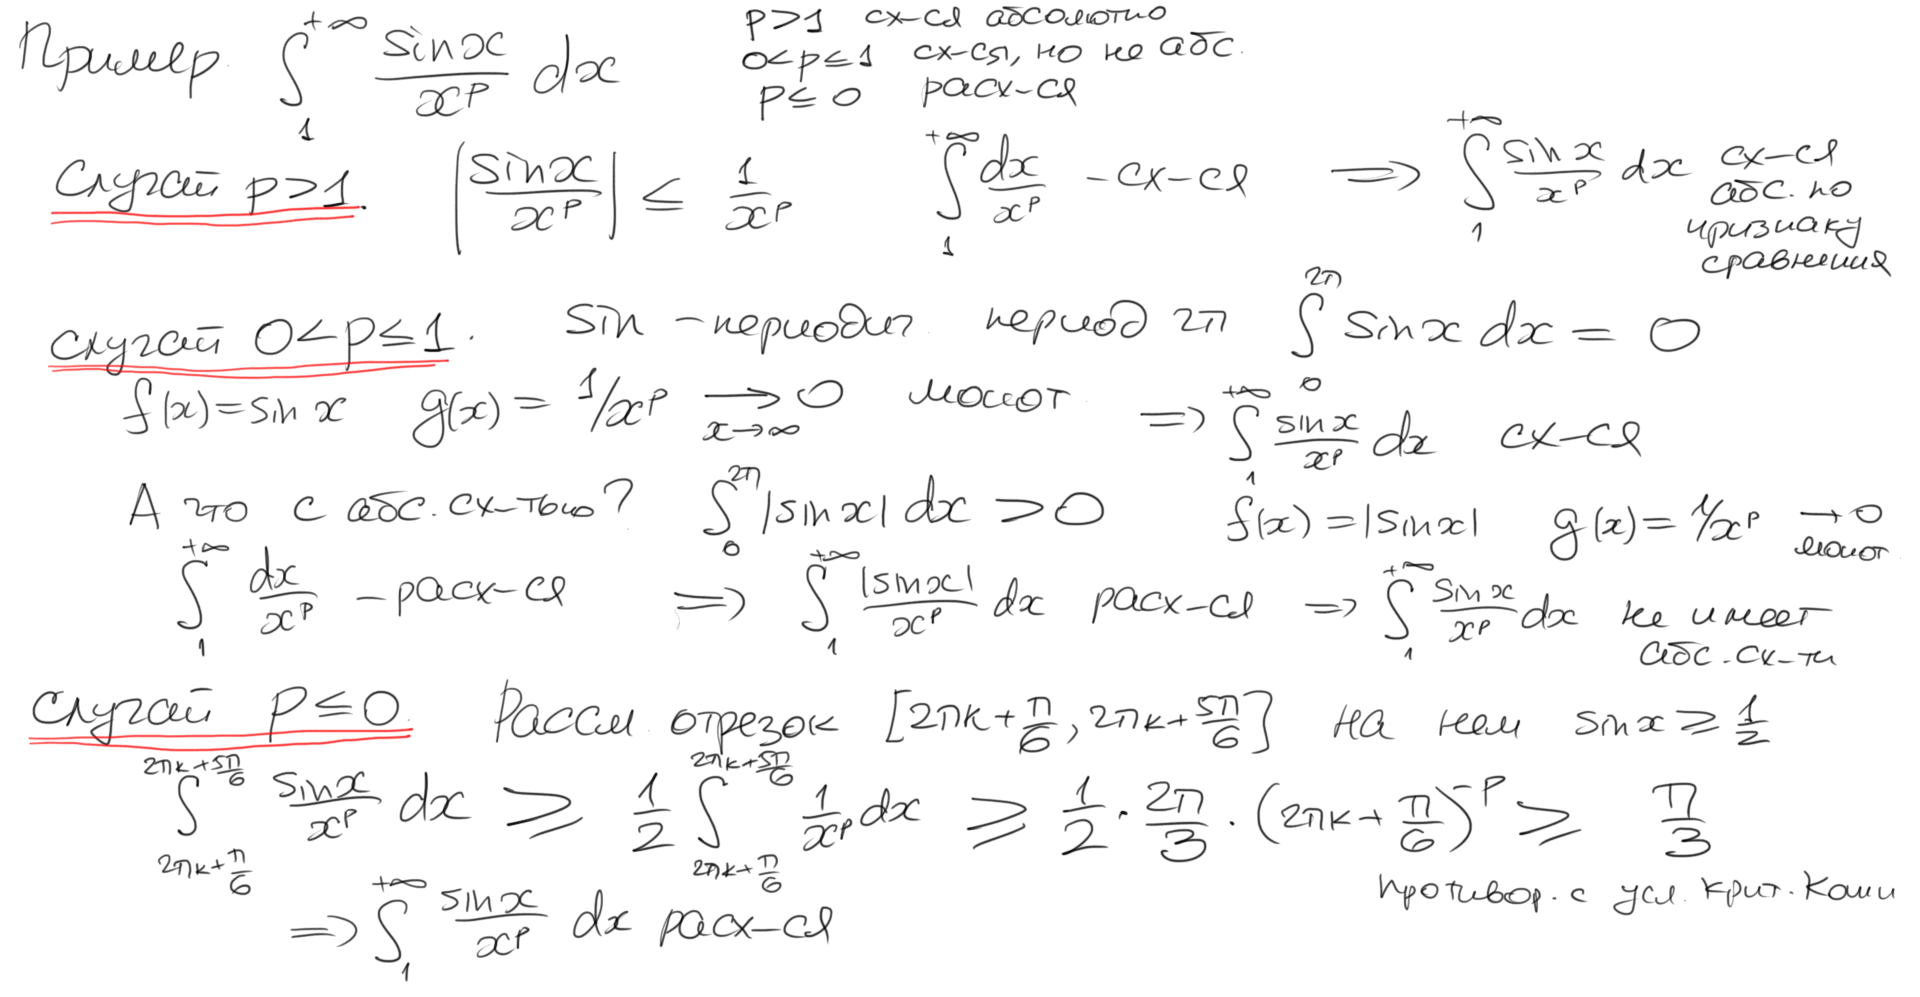 Пример. ∫₁^{+∞} sinx/x^p dx p>1 сх-ся абсолютно
0<p≤1 сх-ся, но не абс.
p≤0 расх-ся
Случай p>1. |sinx/x^p| ≤ 1/x^p ∫₁^{+∞} dx/x^p - сх-ся ⟹ ∫₁^{+∞} sinx/x^p dx сх-ся
абс. по
признаку
сравнения
случай 0<p≤1. sin - периодич. период 2π ∫₀^{2π} sinx dx = 0
f(x)=sinx g(x)= 1/x^p →_{x→∞} 0 монот ⟹ ∫₁^{+∞} sinx/x^p dx сх-ся
А что с абс. сх-тью? ∫₀^{2π} |sinx| dx > 0 f(x)=|sinx| g(x)= 1/x^p → 0
монот
∫₁^{+∞} dx/x^p - расх-ся ⟹ ∫₁^{+∞} |sinx|/x^p dx расх-ся ⟹ ∫₁^{+∞} sinx/x^p dx не имеет
абс. сх-ти
случай p≤0. Рассм. отрезок [2πk+π/6, 2πk+5π/6] на нем sinx ≥ 1/2
∫_{2πk+π/6}^{2πk+5π/6} sinx/x^p dx ≥ 1/2 ∫_{2πk+π/6}^{2πk+5π/6} 1/x^p dx ≥ 1/2 · 2π/3 · (2πk+π/6)^{-p} ≥ π/3
противор. с усл. крит. Коши
⟹ ∫₁^{+∞} sinx/x^p dx расх-ся